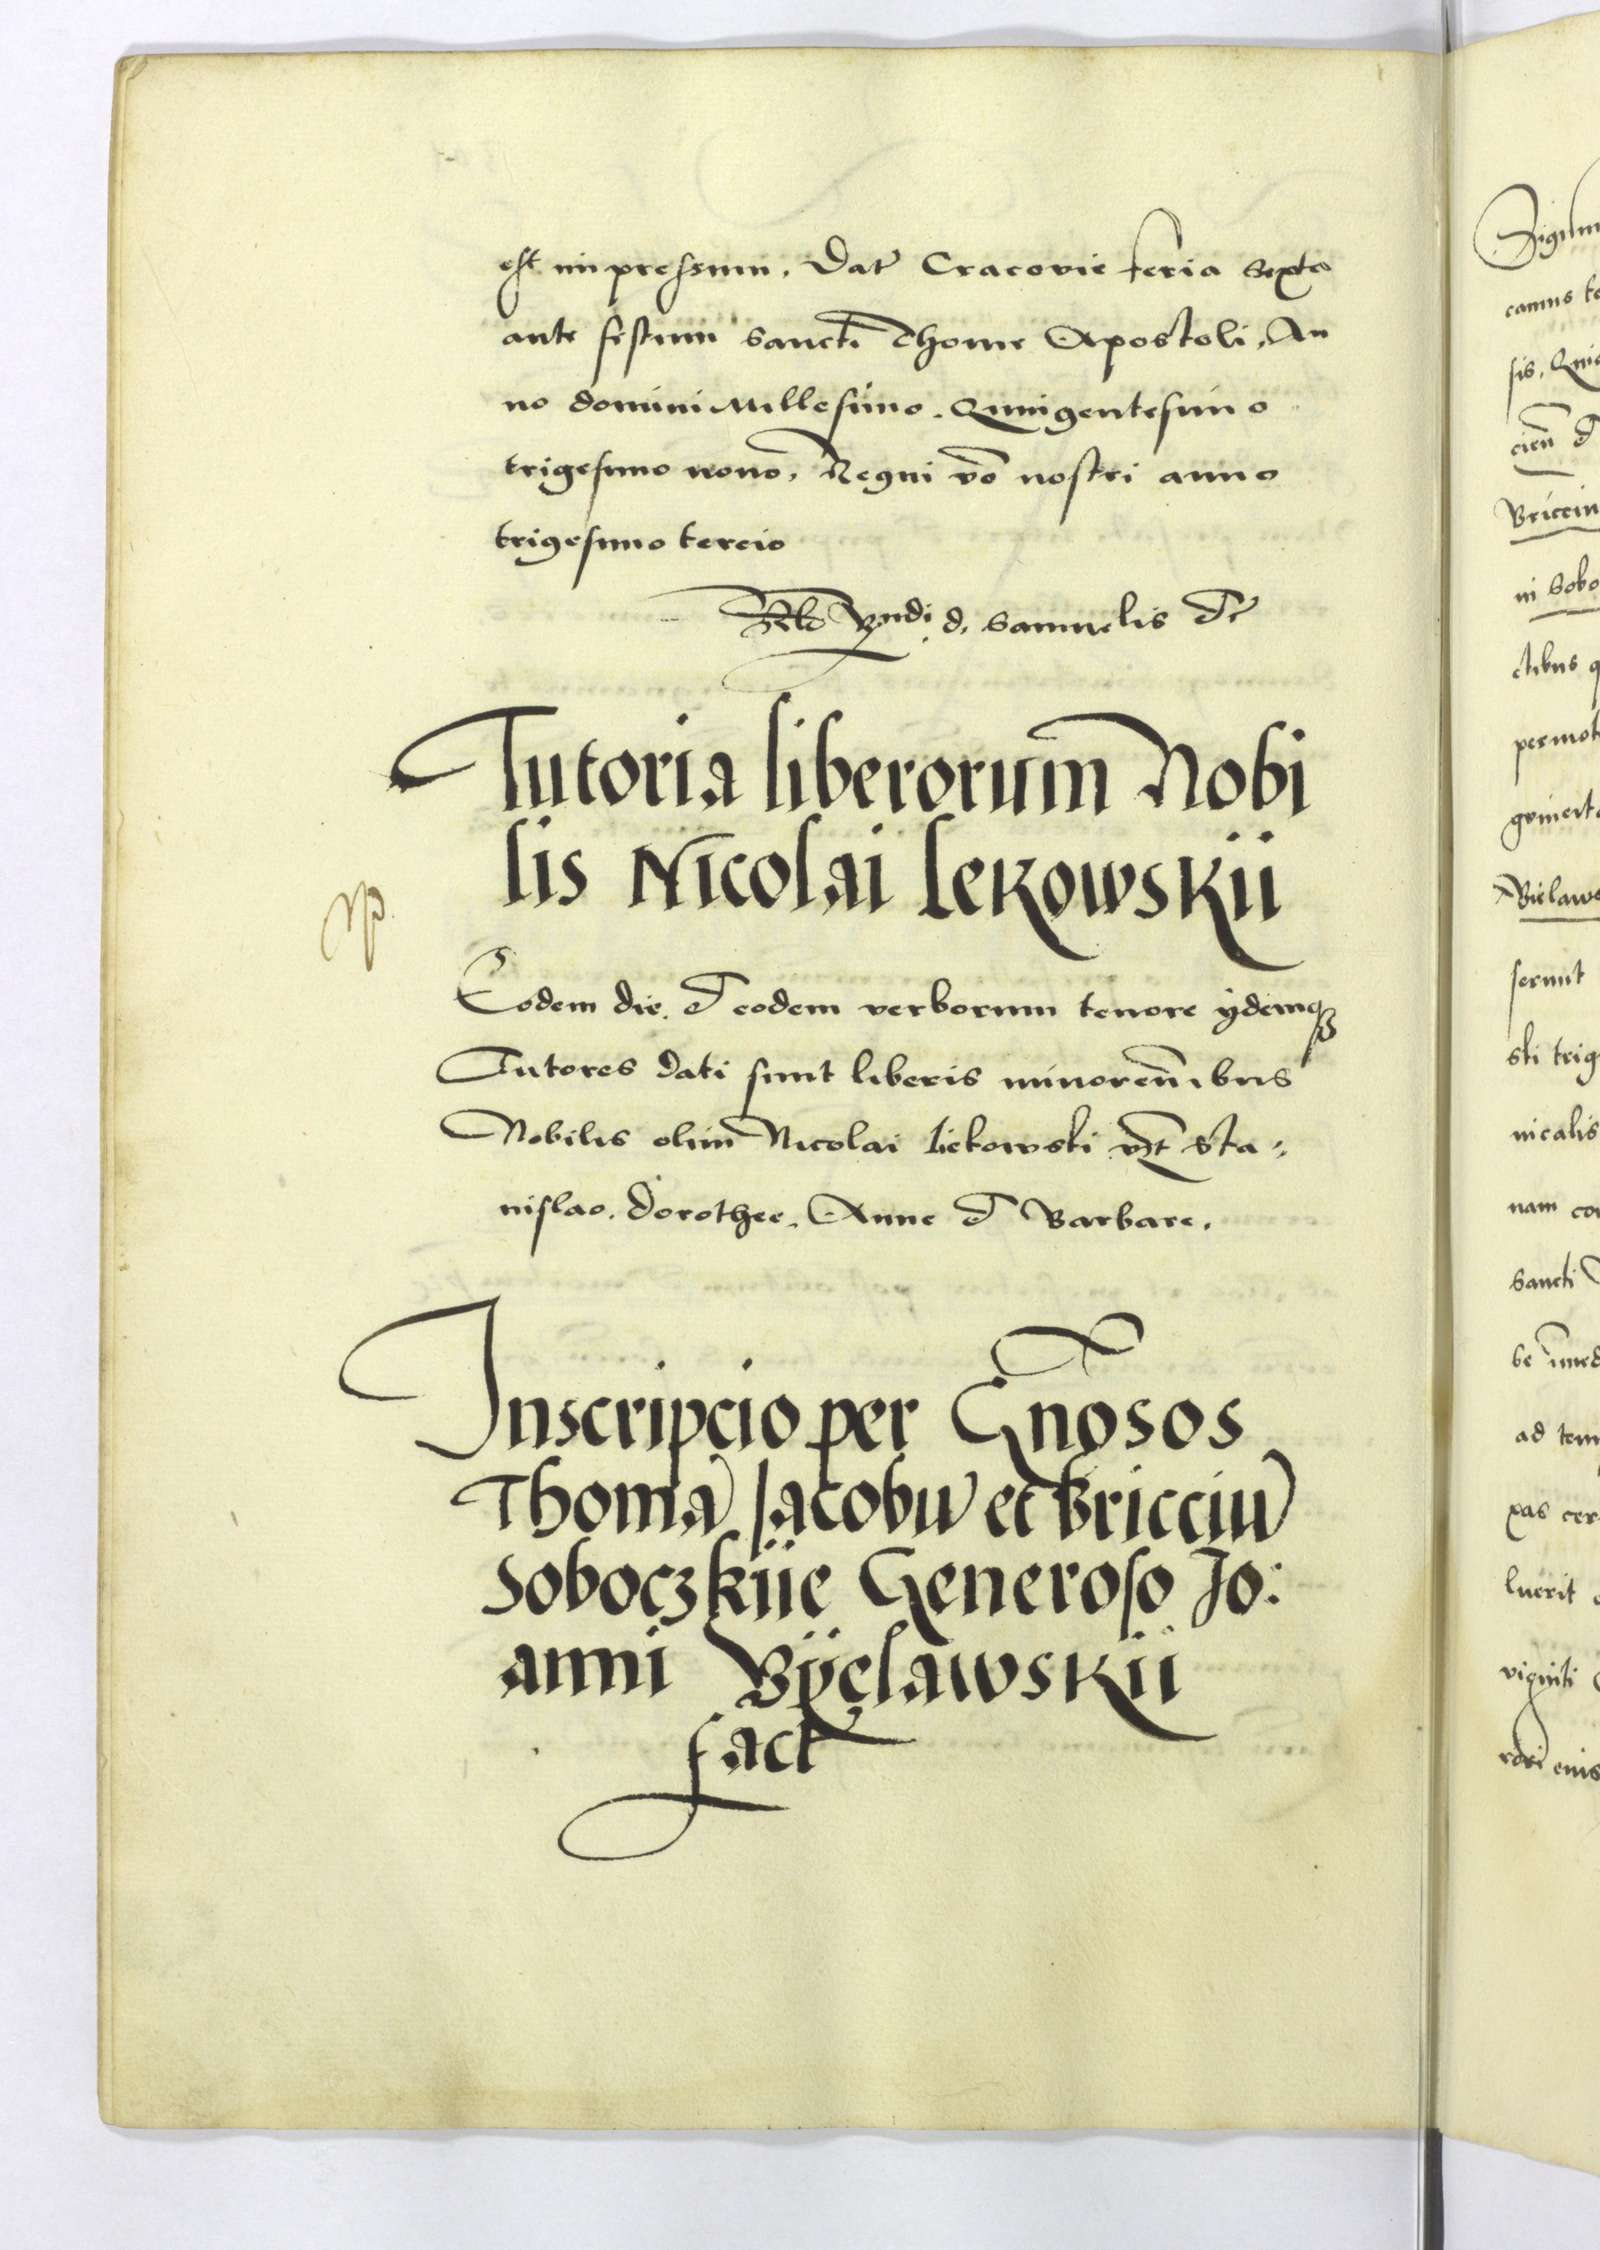 est impressum. Dat Cracovie feria sexta
ante festum Sancti Thome Apostoli, An
no domini Millesimo. Quingentesimo
trigesimo nono, Regni vo nostri anno
trigesimo tercio
Rndi d. Samuelis et
Tutoria liberorum Nobi
lis Nicolai Lekowskii
Eodem die. et eodem verborum tenore ÿdemqȝ
Tutores dati sunt liberis minorēnibus
Nobilis olim Nicolai Liekowski vȝt Sta-
nislao. Dorothee. Anne et Barbare.
Inscripcio per Gnosos
Thomā Jacobū et Bricciū
Soboczkiie Generoso Jo:
anni Byelawskii
fact
Sigum
camus
sis.
cien et
Bricciu
ni Sobo
ctibus q
permot
Bielaws
serunt
ski trig
nicalis
nam co
Sancti
be
ad tem
xas cer
luerit
viginti
eius